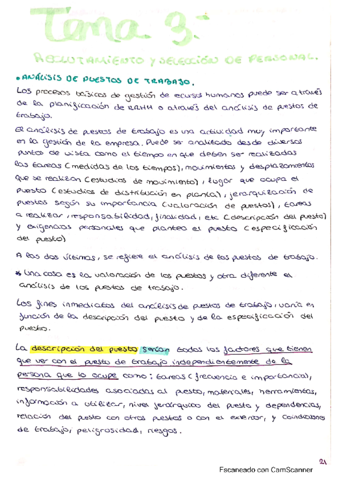 Tema 3.-
RECLUTAMIENTO Y SELECCIÓN DE PERSONAL.
• ANÁLISIS DE PUESTOS DE TRABAJO.
Los procesos básicos de gestión de recursos humanos puede ser a través
de la planificación de RRHH o a través del análisis de puestos de
trabajo.
El análisis de puestos de trabajo es una actividad muy importante
en la gestión de la empresa. Puede ser analizado desde diversos
puntos de vista como el tiempo en que deben ser realizadas
las tareas (medidas de los tiempos), movimientos y desplazamientos
que se realizan (estudios de movimiento), lugar que ocupa el
puesto (estudios de distribución en planta), jerarquización de
puestos según su importancia (valoración de puestos), tareas
a realizar, responsabilidad, finalidad, etc (descripción del puesto)
y exigencias personales que plantea el puesto (especificación
del puesto)
A las dos últimas, se refiere el análisis de los puestos de trabajo.
Una cosa es la valoración de los puestos y otra diferente el
análisis de los puestos de trabajo.
Los fines inmediatos del análisis de puestos de trabajo, varía en
función de la descripción del puesto y de la especificación del
puesto.
La descripción del puesto serían todos los factores que tienen
que ver con el puesto de trabajo independientemente de la
persona que lo ocupe como: tareas (frecuencia e importancia),
responsabilidades asociadas al puesto, materiales, herramientas,
información a utilizar, nivel jerárquico del puesto y dependencias,
relación del puesto con otros puestos o con el exterior, y condiciones
de trabajo, peligrosidad, riesgos.
21
Escaneado con CamScanner